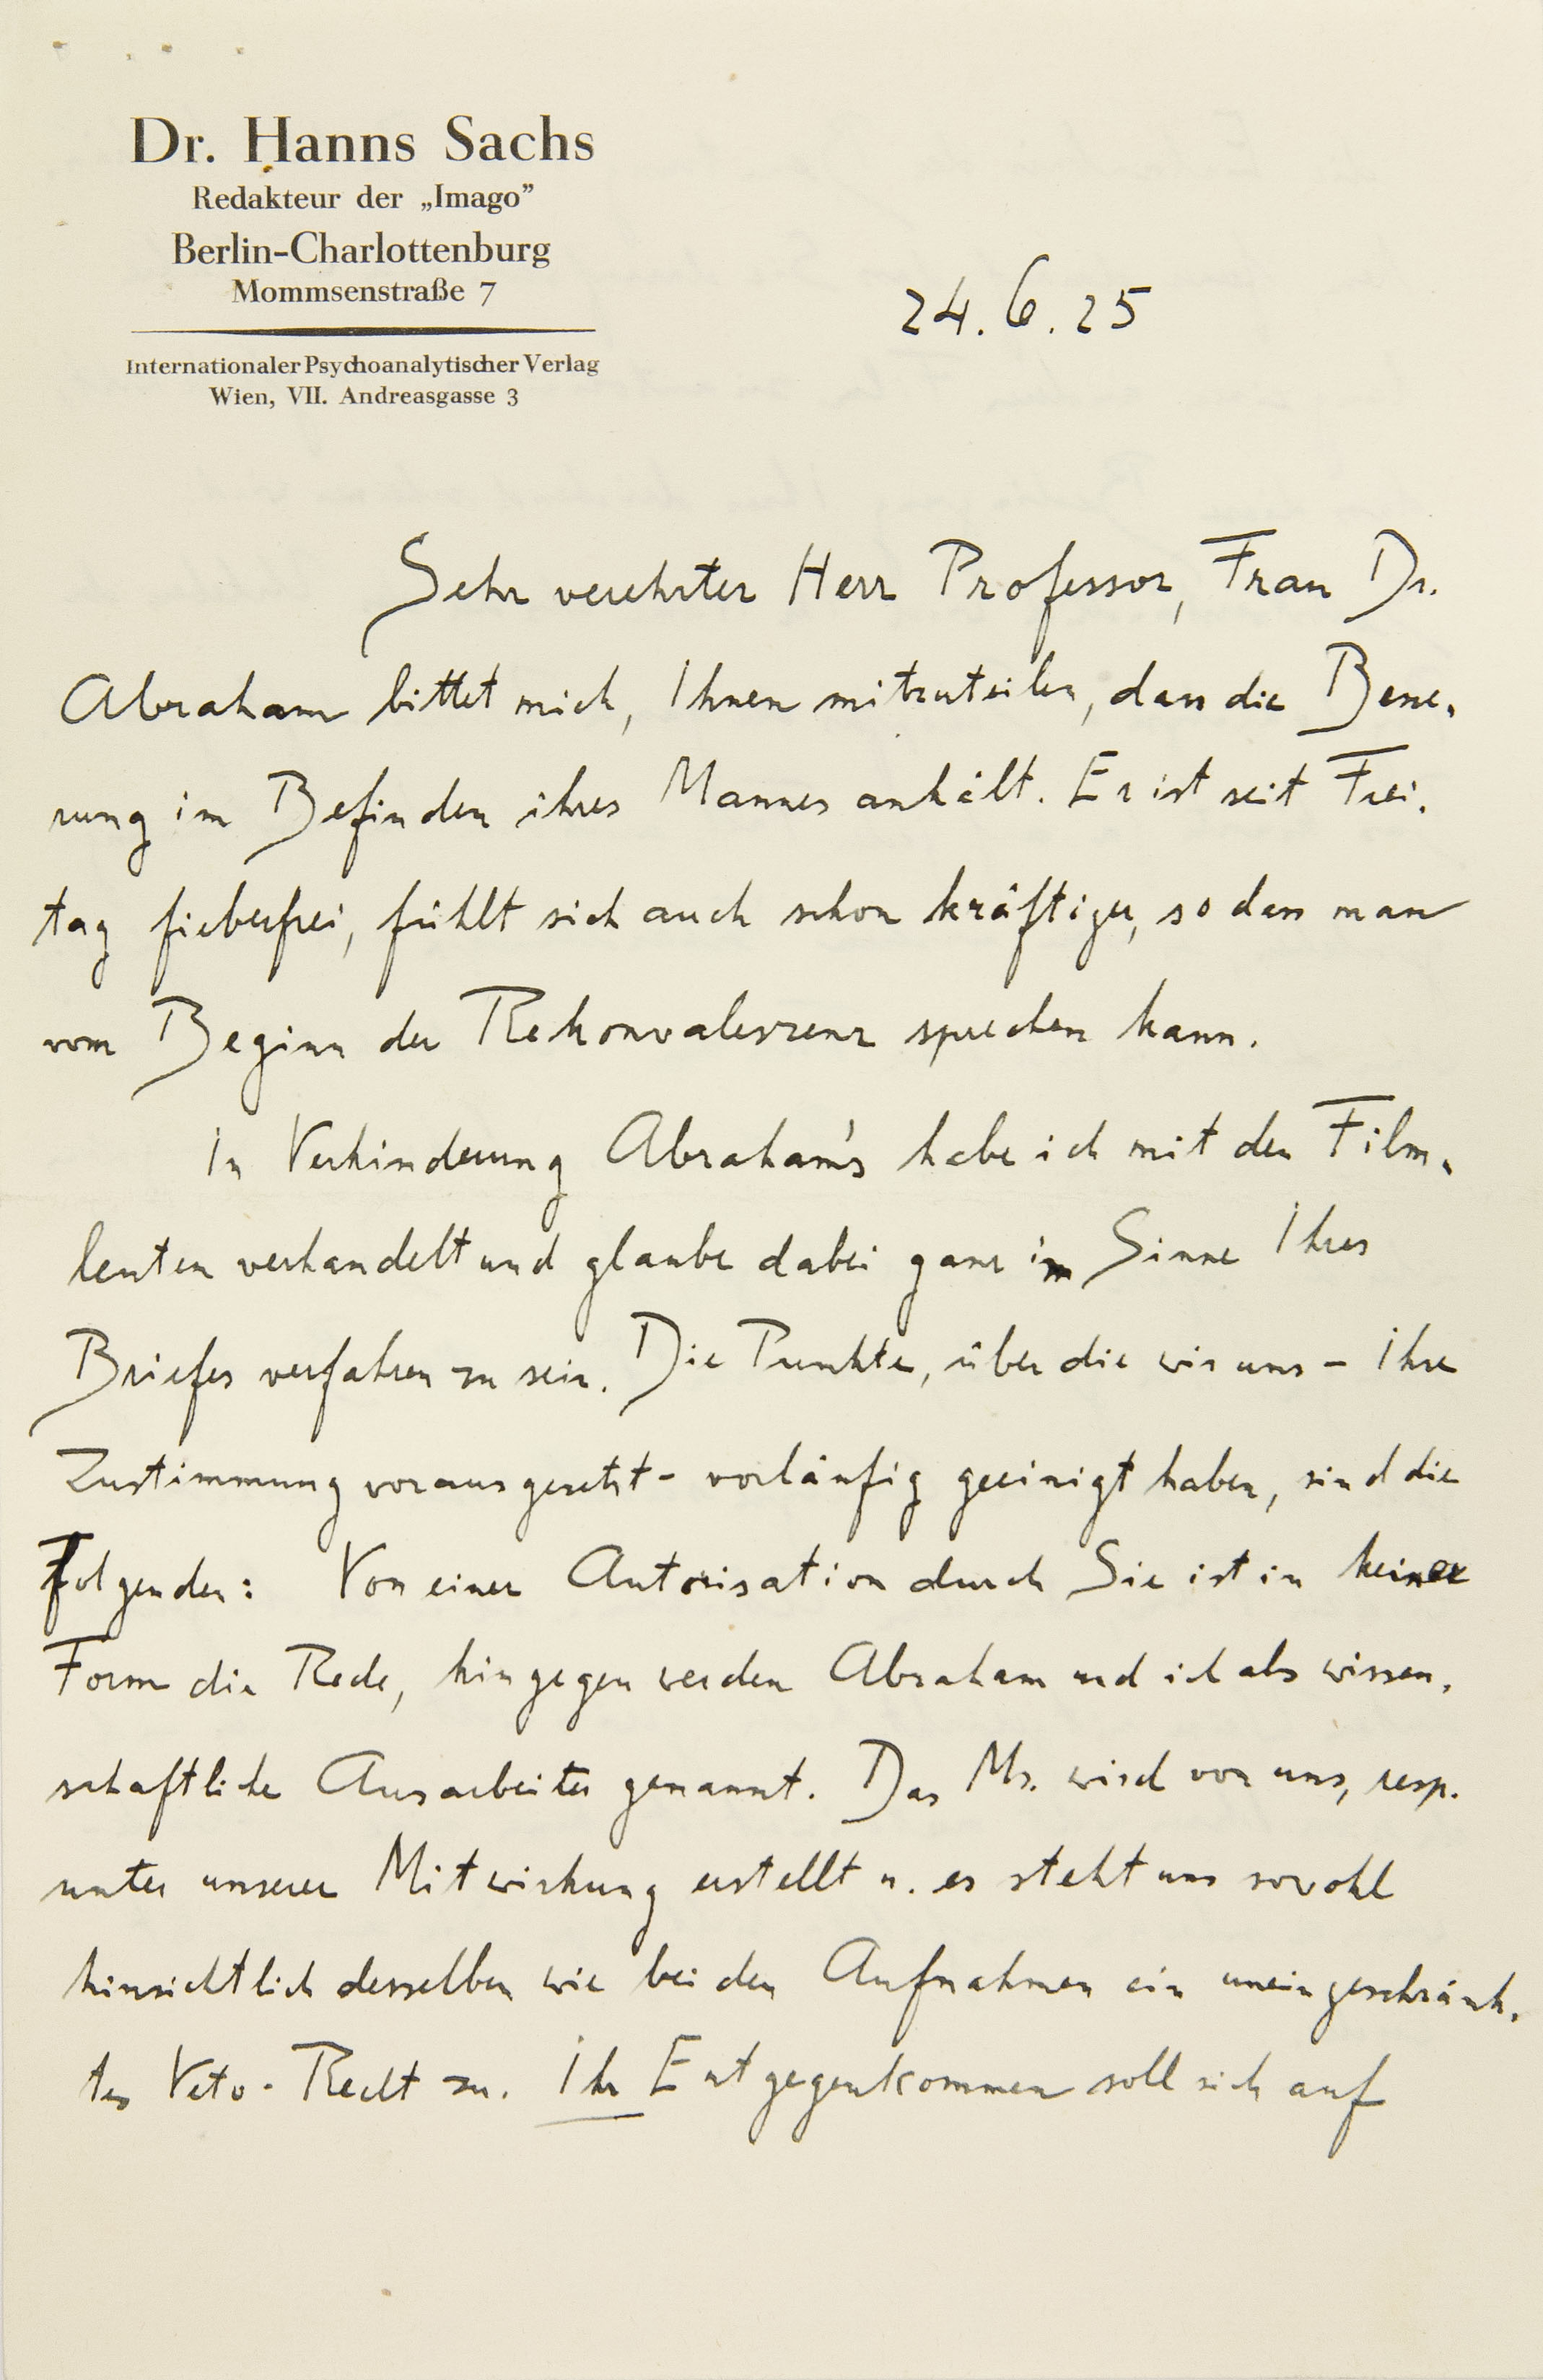 Dr. Hanns Sachs
Redakteur der „Imago”
Berlin-Charlottenburg
Mommsenstraße 7
Internationaler Psychoanalytischer Verlag
Wien, VII. Andreasgasse 3
24. 6. 25
Sehr verehrter Herr Professor, Frau Dr.
Abraham bittet mich, Ihnen mitzuteilen, dass die Besse-
rung im Befinden ihres Mannes anhält. Er ist seit Frei-
tag fieberfrei, fühlt sich auch schon kräftiger, so dass man
vom Beginn der Rekonvaleszenz sprechen kann.
In Verhinderung Abraham's habe ich mit den Film-
leuten verhandelt und glaube dabei ganz im Sinne Ihres
Briefes verfahren zu sein. Die Punkte, über die wir uns – Ihre
Zustimmung vorausgesetzt – vorläufig geeinigt haben, sind die
Folgenden: Von einer Autorisation durch Sie ist in keiner
Form die Rede, hingegen werden Abraham und ich als wissen-
schaftliche Ausarbeiter genannt. Das Ms. wird von uns, resp.
unter unserer Mitwirkung erstellt u. es steht uns sowohl
hinsichtlich desselben wie bei den Aufnahmen ein uneingeschränk-
tes Veto-Recht zu. Ihr Entgegenkommen soll sich auf